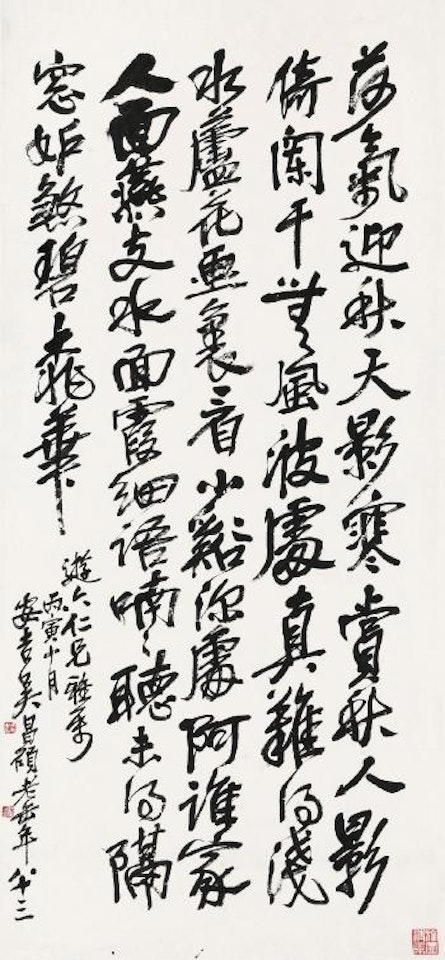 荷氣迎秋天影寒賞秋人影
倚闌干無風波處真難得淺
水蘆花畫裏看小谿深處阿誰家
人面燕支水面霞細語喃〻聽未得隔
窓妒煞碧桃華
六仁兄雅屬
丙寅十月
安吉吴昌碩老缶年八十三